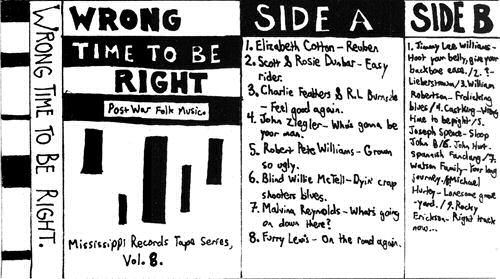 WRONG TIME TO BE RIGHT.
WRONG
TIME TO BE
RIGHT
Post War Folk Music.
Mississippi Records Tape Series,
Vol. 8.
SIDE A
1. Elizabeth Cotton - Reuben
2. Scott & Rosie Dunbar - Easy
rider.
3. Charlie Feathers & R.L Burnside
- Feel good again.
4. John Ziegler - Who's gonna be
your man.
5. Robert Pete Williams - Grown
so ugly.
6. Blind Willie McTell - Dyin' crap
shooters blues.
7. Malvina Reynolds - What's going
on down there?
8. Furry Lewis - On the road again.
SIDE B
1. Jimmy Lee Williams -
Hoot your belly, give your
backbone ease./2. ? -
Lieberstown/3. William
Robertson - Frolicking
blues/4. - Wrong
time to be right/5.
Joseph Spence - Sloop
John B/6. John Hurt -
Spanish Fandang/7.
Watson Family - Your long
journey./8 Michael
Hurley - Lonesome grave
-yard./9. Rocky
Erickson - Right track
now...